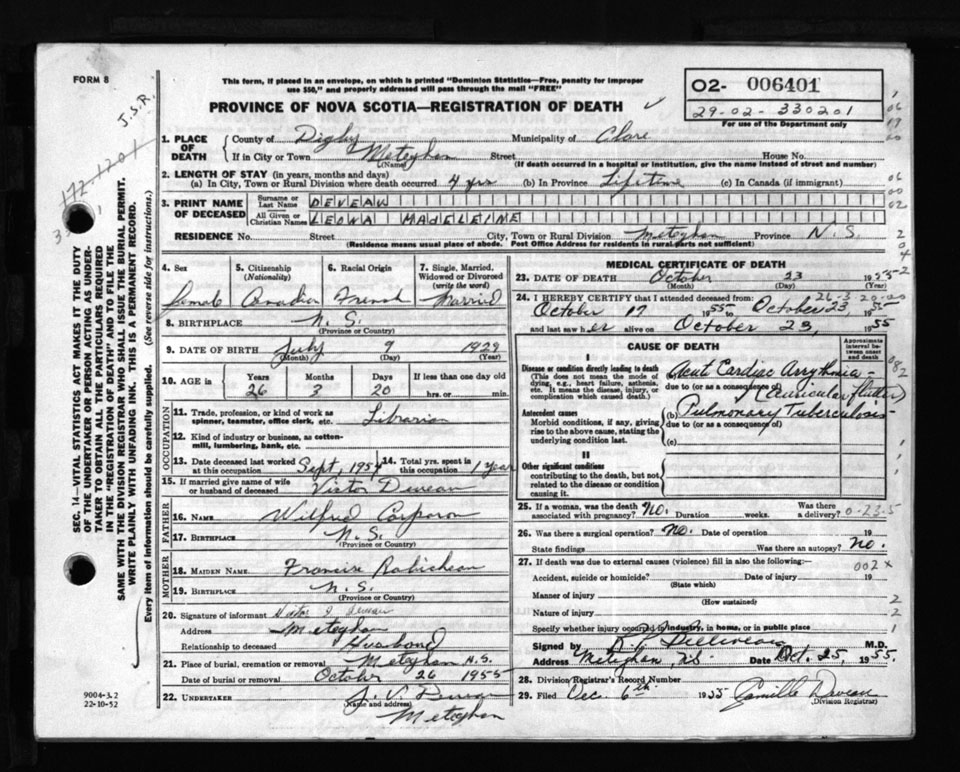 FORM 8
This form, if placed in an envelope, on which is printed "Dominion Statistics—Free, penalty for improper
use $50," and properly addressed will pass through the mail "FREE"
O2- 006401
29-02-330201
For use of the Department only
J.S.R.
PROVINCE OF NOVA SCOTIA—REGISTRATION OF DEATH
1. PLACE OF DEATH
County of Digby Municipality of Clare
If in City or Town Meteghan Street House No.
(Name) (If death occurred in a hospital or institution, give the name instead of street and number)
2. LENGTH OF STAY (in years, months and days)
(a) In City, Town or Rural Division where death occurred 4 yrs (b) In Province Lifetime (c) In Canada (if immigrant)
3. PRINT NAME OF DECEASED
Surname or Last Name DEVEAU
All Given or Christian Names LEONA MADELEINE
RESIDENCE No. Street City, Town or Rural Division Meteghan Province N.S.
(Residence means usual place of abode. Post Office Address for residents in rural parts not sufficient)
4. Sex
female
5. Citizenship (Nationality)
Canadian
6. Racial Origin
French
7. Single, Married, Widowed or Divorced (write the word)
Married
8. BIRTHPLACE N.S.
(Province or Country)
9. DATE OF BIRTH July 9 1929
(Month) (Day) (Year)
10. AGE in
Years Months Days If less than one day old
26 3 20 hrs. or min.
OCCUPATION
11. Trade, profession, or kind of work as
spinner, teamster, office clerk, etc. Librarian
12. Kind of industry or business, as cotton-
mill, lumbering, bank, etc.
13. Date deceased last worked
at this occupation Sept, 1954
14. Total yrs. spent in
this occupation 1 year
15. If married give name of wife
or husband of deceased Victor Deveau
FATHER
16. NAME Wilfred Corporon
17. BIRTHPLACE N.S.
(Province or Country)
MOTHER
18. MAIDEN NAME Francis Robicheau
19. BIRTHPLACE N.S.
(Province or Country)
20. Signature of informant Victor J Deveau
Address Meteghan
Relationship to deceased Husband
21. Place of burial, cremation or removal Meteghan N.S.
Date of burial or removal October 26 1955
22. UNDERTAKER J. V. Deveau
(Name and address)
Meteghan
MEDICAL CERTIFICATE OF DEATH
23. DATE OF DEATH October 23 1955
(Month) (Day) (Year)
24. I HEREBY CERTIFY that I attended deceased from:
26-3 20-00
October 17 1955 to October 23, 1955
and last saw her alive on October 23, 1955
CAUSE OF DEATH
Approximate interval between onset and death
I
Disease or condition directly leading to death
(This does not mean the mode of
dying, e.g., heart failure, asthenia,
etc. It means the disease, injury, or
complication which caused death.)
(a) Acut Cardiac Arrythmia -
due to (or as a consequence of)
(Auricular flutter)
Antecedent causes
Morbid conditions, if any, giving
rise to the above cause, stating the
underlying condition last.
(b) Pulmonary Tuberculosis-
due to (or as a consequence of)
(c)
II
Other significant conditions
contributing to the death, but not
related to the disease or condition
causing it.
25. If a woman, was the death
associated with pregnancy? No. Duration weeks. Was there
a delivery? 0-23-5
26. Was there a surgical operation? No. Date of operation 19
State findings Was there an autopsy? No.
27. If death was due to external causes (violence) fill in also the following: 002x
Accident, suicide or homicide? Date of injury 19
(State which)
Manner of injury
(How sustained)
Nature of injury
Specify whether injury occurred in industry, in home, or in public place
Signed by M.D.
Address Meteghan N.S. Date Oct. 25, 1955.
28. Division Registrar's Record Number
29. Filed Dec. 6th 1955 Camille Deveau
(Division Registrar)
SEC. 14—VITAL STATISTICS ACT MAKES IT THE DUTY
OF THE UNDERTAKER OR PERSON ACTING AS UNDER-
TAKER TO OBTAIN ALL THE PARTICULARS REQUIRED
IN THE "REGISTRATION OF DEATH" AND TO FILE THE
SAME WITH THE DIVISION REGISTRAR WHO SHALL ISSUE THE BURIAL PERMIT.
WRITE PLAINLY WITH UNFADING INK. THIS IS A PERMANENT RECORD.
Every item of information should be carefully supplied. (See reverse side for instructions.)
9004-3.2
22-10-52